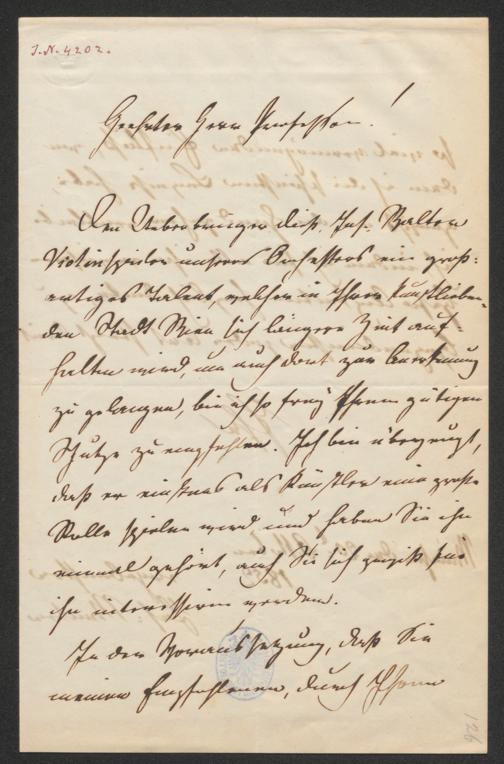 I.N. 4202.
Geehrter Herr Professor!
Den Ueberbringer dieß, Jos. Walter
Violinspieler unseres Orchesters ein groß-
artiges Talent, welcher in Ihrer kunstlieben-
den Stadt Wien sich längere Zeit auf-
halten wird, um auch dort zur Anerkennung
zu gelangen, bin ich so frey Ihrem gütigen
Schutze zu empfehlen. Ich bin überzeugt,
daß er einstens als Künstler eine große
Rolle spielen wird und haben Sie ihn
einmal gehört, auch Sie sich gewiß für
ihn interessiren werden.
In der Voraussetzung, daß Sie
meinen Empfohlenen, durch Ihren
126